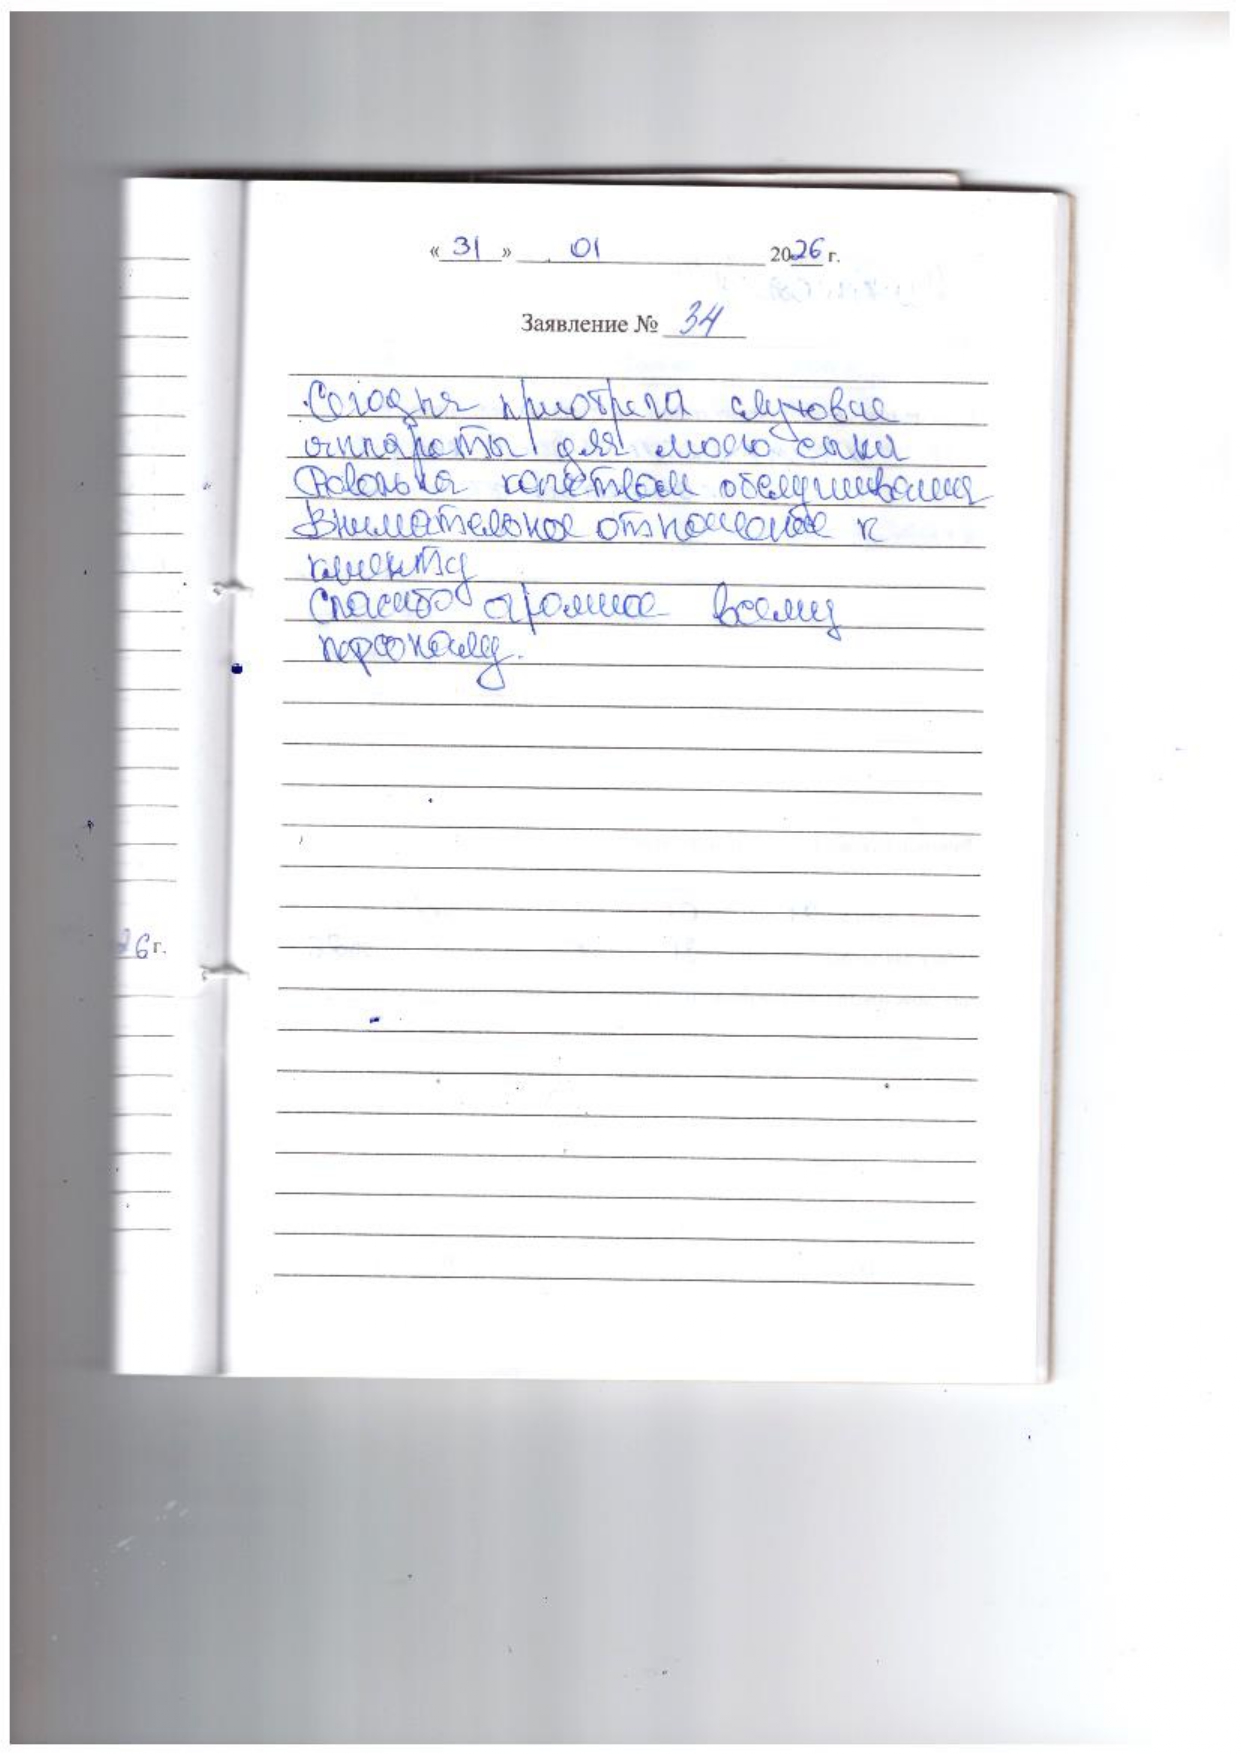 « 31 » 01 2026 г.
Заявление № 34
Сегодня приобрела слуховые
аппараты для моего сына
Довольна качеством обслуживания
Внимательное отношение к
клиенту
Спасибо огромное всему
персоналу.
26 г.